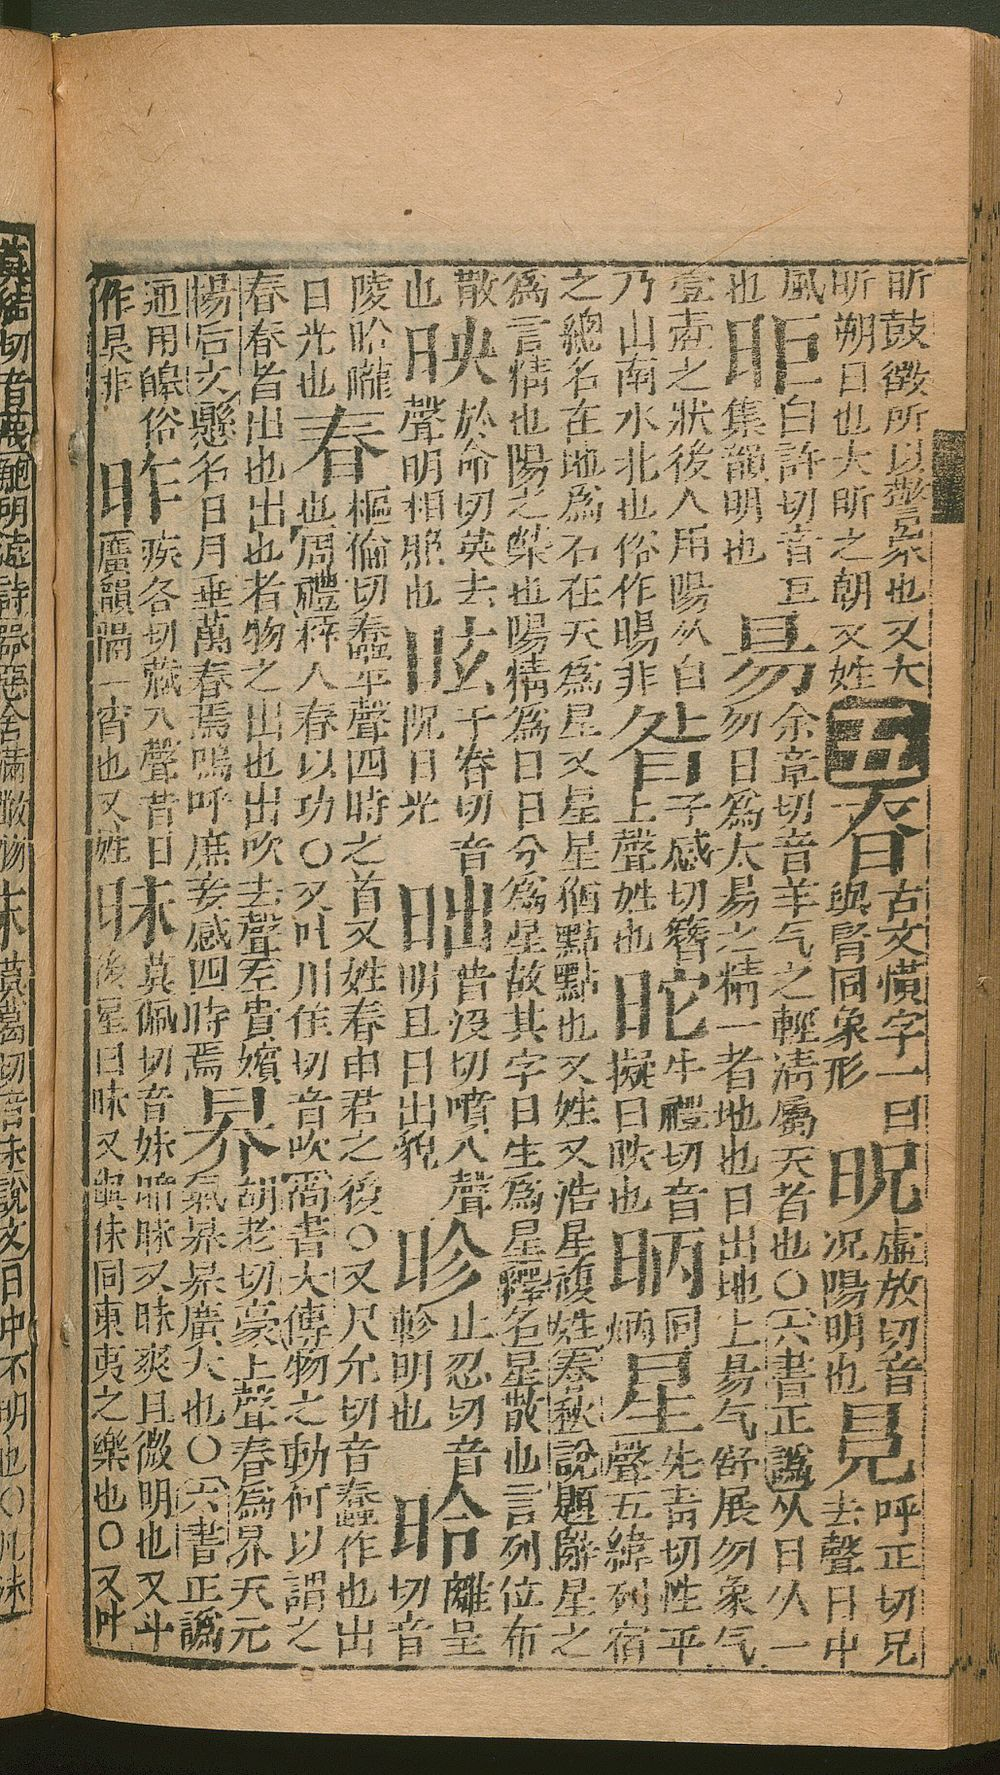 昕鼓徵所以警衆也又大
昕朔日也大昕之朝又姓
五
昚古文慎字一曰
與昚同象形
昵虛放切音
况陽明也
見呼正切兄
去聲日中
風
也
昛臼許切音巨
集韻明也
昜余章切音羊气之輕清屬天者也〇六書正譌从日从一
勿日爲太昜之精一者地也日出地上昜气舒展勿象气
壹壺之狀後人用陽从白
乃山南水北也俗作暘非
昝子感切簪
上聲姓也
㫆牛禮切音
擬日昳也
昞同
炳
星先青切性平
聲五緯列宿
之總名在地爲石在天爲星又星星猶點點也又姓又浩星複姓春秋說題辭星之
爲言情也陽之榮也陽精爲日日分爲星故其字日生爲星釋名星散也言列位布
散
也
映於命切英去
聲明相照也
昡于眷切音
眖日光
昢普沒切噴入聲
明且日出貌
昣止忍切音
軫明也
昤離呈
切音
陵昤曨
日光也
春樞倫切蠢平聲四時之首又姓春申君之後〇又尺允切音蠢作也出
也周禮梓人春以功〇又叶川隹切音吹尚書大傳物之動何以謂之
春春者出也出也者物之出也出吹去聲左貴嬪
楊后文懸名日月垂萬春焉嗚呼庶妾感四時焉
昦胡老切豪上聲春爲昦天元
氣昦昦廣大也〇六書正譌
通用皞俗
作昊非
昨疾各切藏入聲昔日
廣韻隔一宵也又姓
昧莫佩切音妹暗昧又昧爽旦微明也又斗
後星曰昧又與佅同東夷之樂也〇又叶
莫結切音蔑鮑明遠詩
昩莫葛切音末說文日中不明也〇凡沬